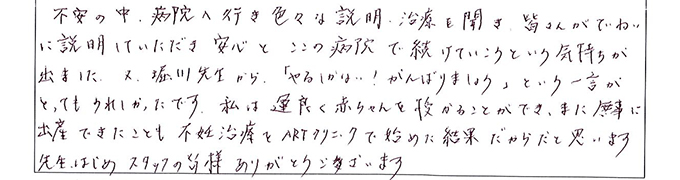 不安の中、病院へ行き色々な説明、治療を聞き、皆さんがていねい
に説明していただき安心と、ここの病院で続けていこうという気持ちが
出ました。又、堀川先生から、「やるしかない!がんばりましょう」という一言が
とってもうれしかったです。私は運良く赤ちゃんを授かることができ、また無事に
出産できたことも不妊治療をARTクリニックで始めた結果だからだと思います
先生はじめスタッフの皆様ありがとうございます